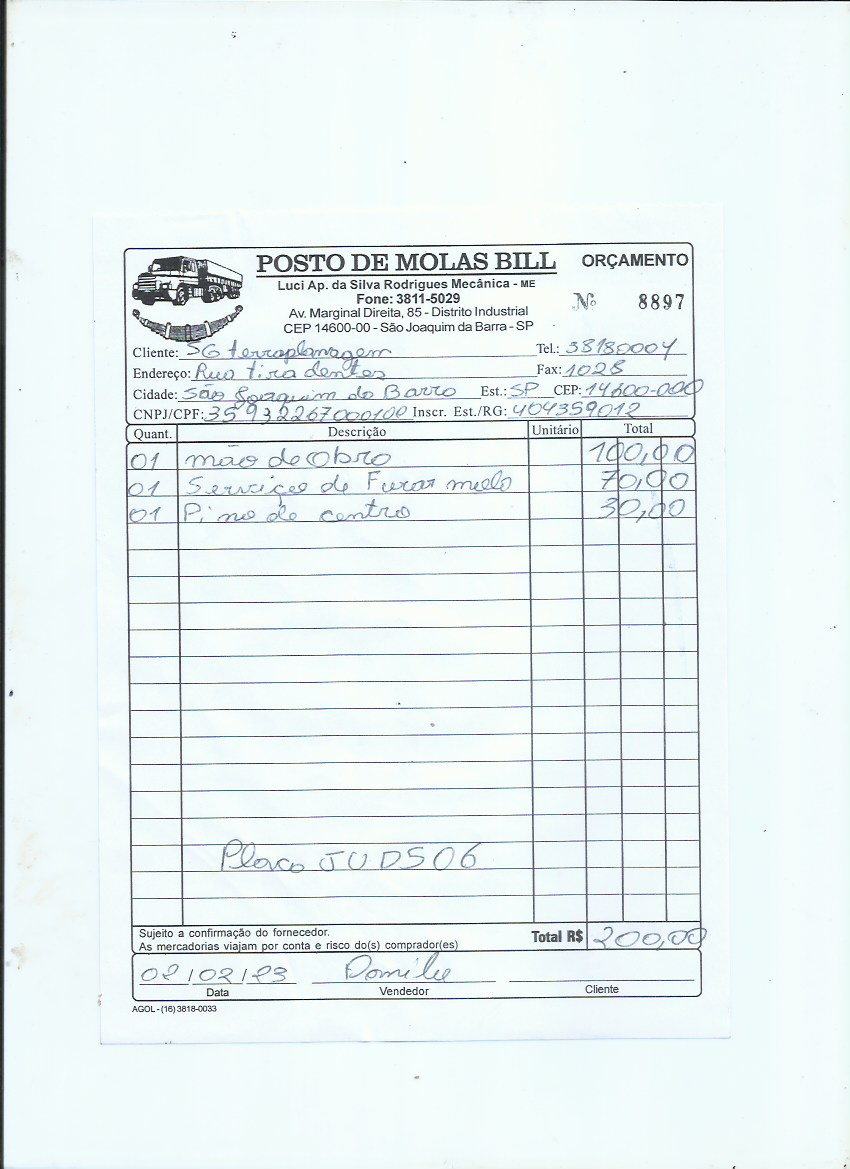 POSTO DE MOLAS BILL ORÇAMENTO
Luci Ap. da Silva Rodrigues Mecânica - ME
Fone: 3811-5029
Nº 8897
Av. Marginal Direita, 85 - Distrito Industrial
CEP 14600-00 - São Joaquim da Barra - SP
Cliente: SG terraplanagem Tel.: 38180004
Endereço: Rua tira dentes Fax: 1028
Cidade: São Joaquim da Barra Est.: SP CEP: 14600-000
CNPJ/CPF: 35932267000100 Inscr. Est./RG: 404359012
Quant. Descrição Unitário Total
01 mão de Obra 100,00
01 Serviço de Furar 70,00
01 Pino de centro 30,00
Placa JUD506
Sujeito a confirmação do fornecedor.
As mercadorias viajam por conta e risco do(s) comprador(es) Total R$ 200,00
02/02/23
Data Vendedor Cliente
AGOL - (16) 3818-0033